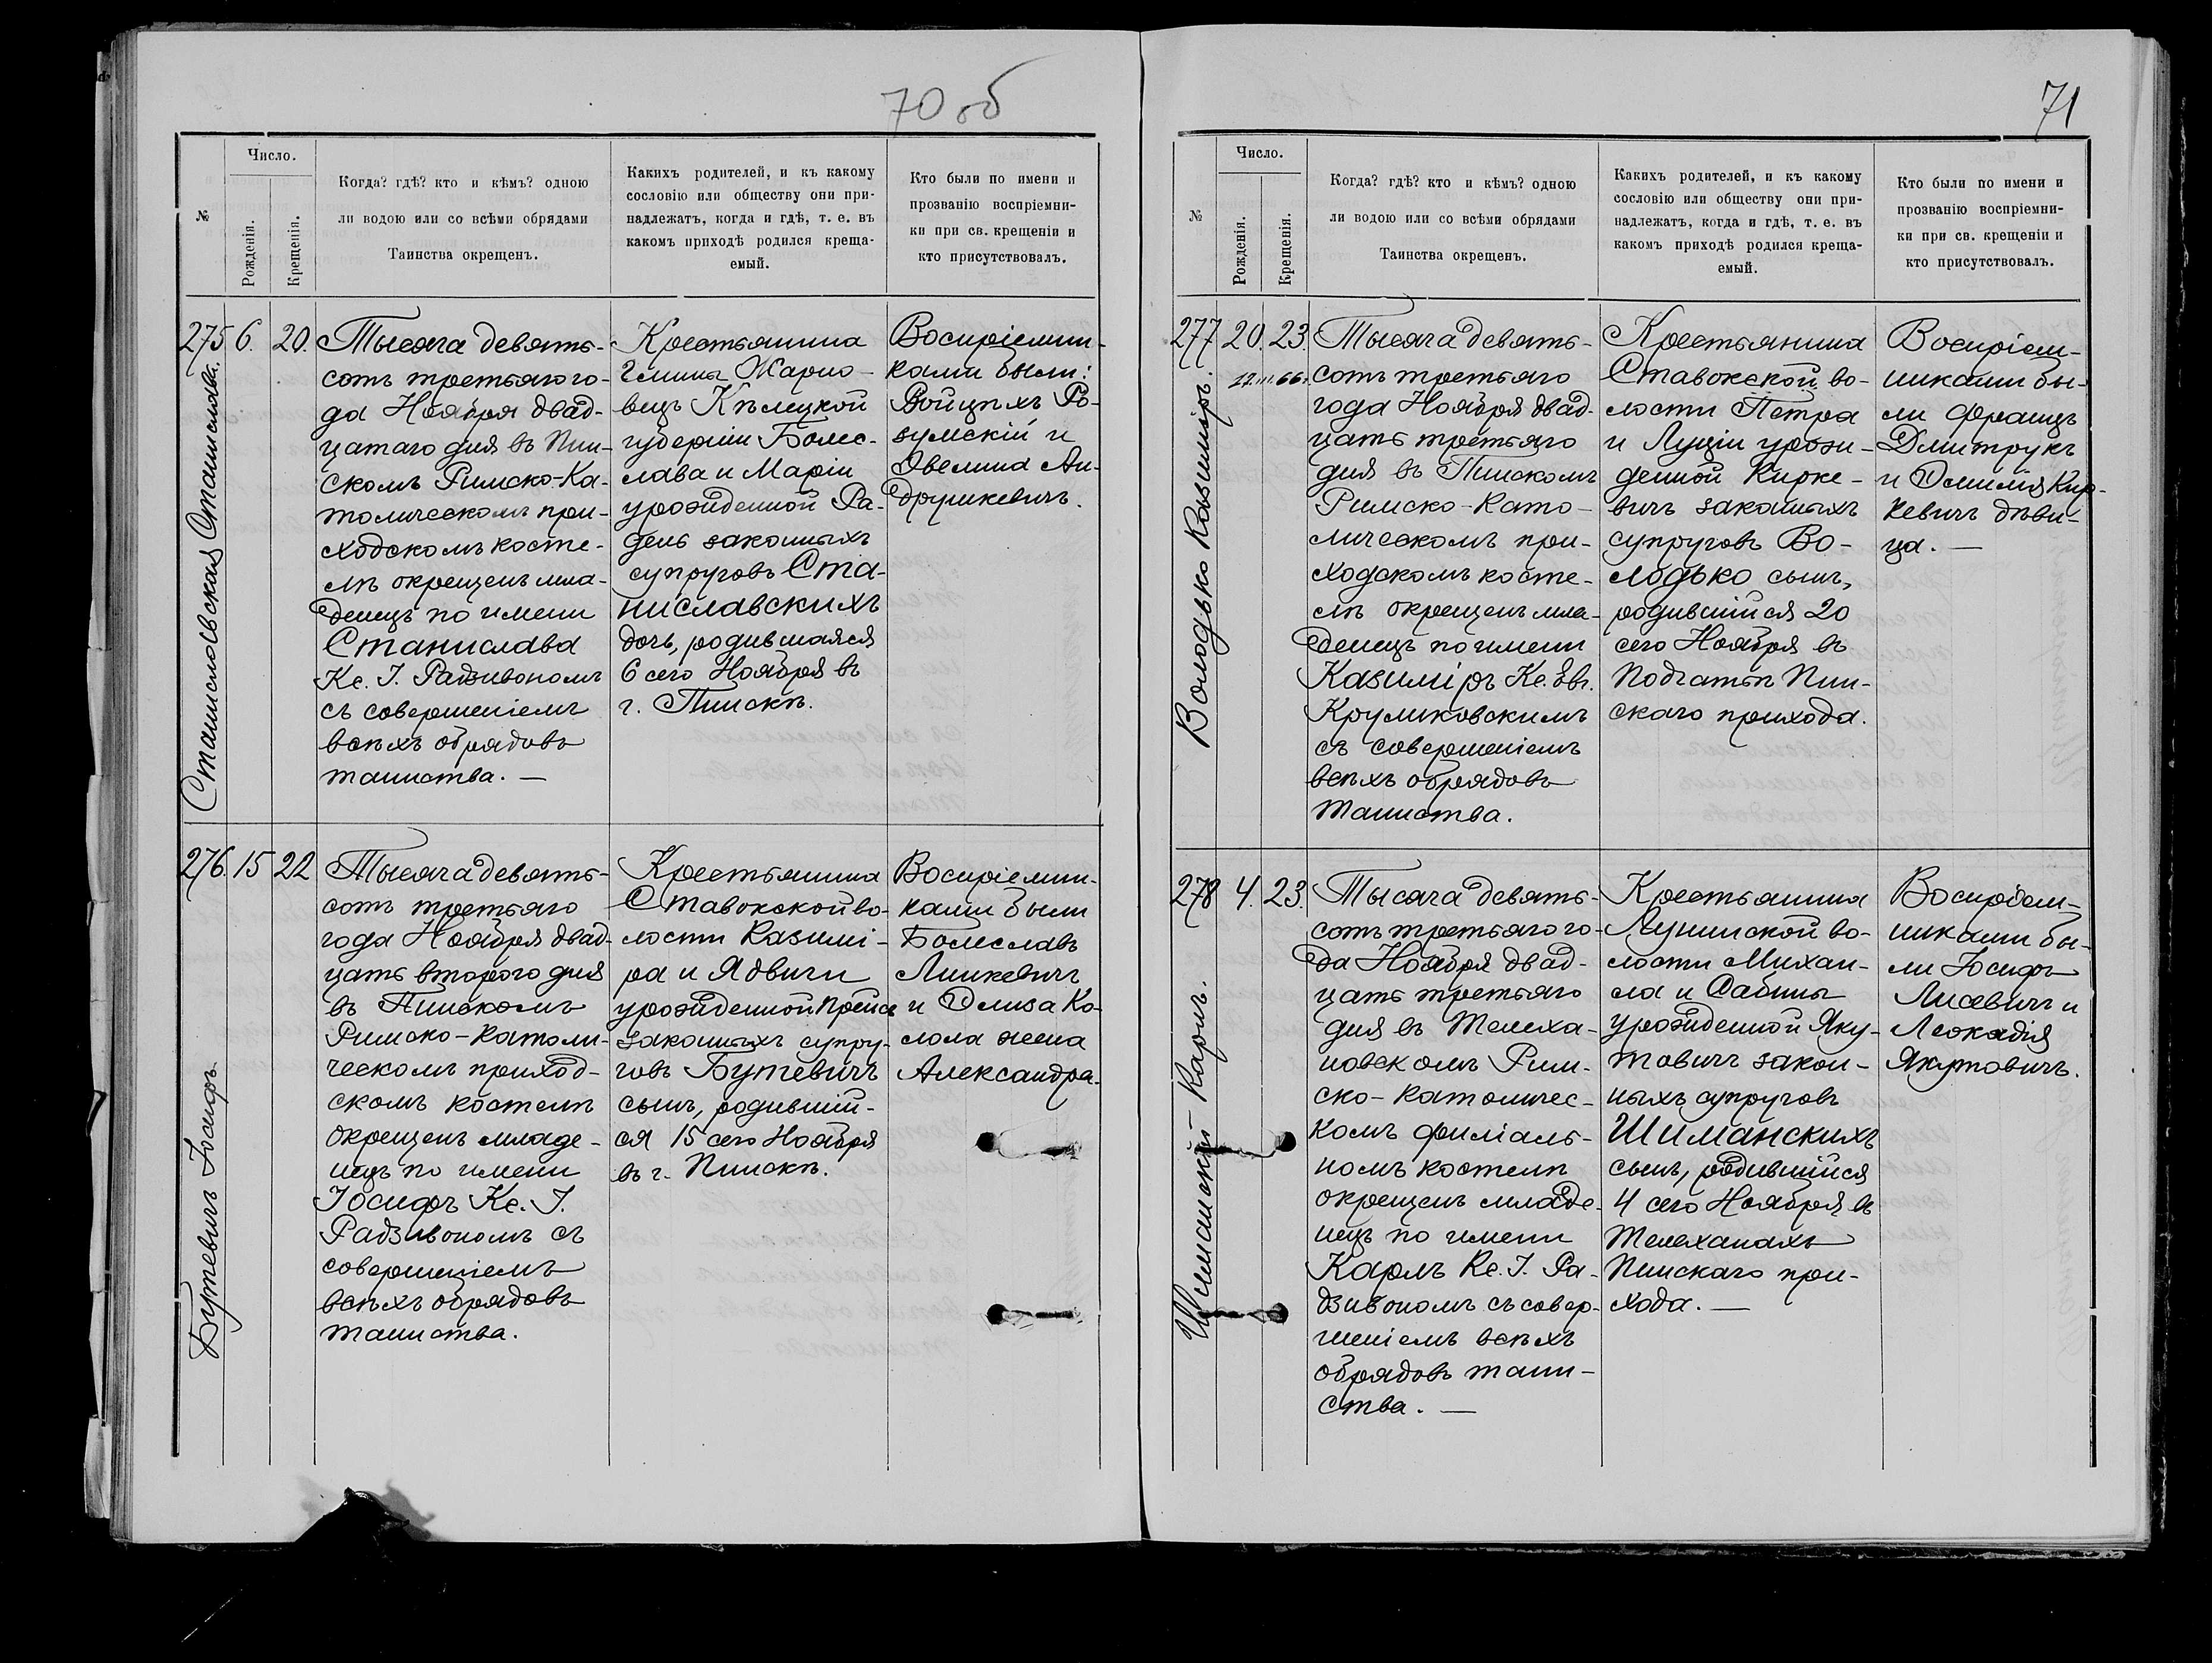 70 об
№
Число.
Рожденія.
Крещенія.
Когда? гдѣ? кто и кѣмъ? одною
ли водою или со всѣми обрядами
Таинства окрещенъ.
Какихъ родителей, и къ какому
сословію или обществу они при-
надлежатъ, когда и гдѣ, т. е. въ
какомъ приходѣ родился креща-
емый.
Кто были по имени и
прозванію воспріемни-
ки при св. крещеніи и
кто присутствовалъ.
275
6.
20.
Станиславская Станислава.
Тысяча девять-
сотъ третьяго го-
да Ноября двад-
цатаго дня въ Пин-
скомъ Римско-Ка-
толическомъ при-
ходскомъ косте-
лѣ окрещенъ мла-
денецъ по имени
Станислава
Кс. І. Радзивономъ
съ совершеніемъ
всѣхъ обрядовъ
таинства. —
Крестьянина
гмины Жарно-
вецъ Кѣлецкой
губерніи Болес-
лава и Маріи
урожденной Ра-
день законныхъ
супруговъ Ста-
ниславскихъ
дочь, родившаяся
6 сего Ноября въ
г. Пинскѣ.
Воспріемни-
ками были:
Войцѣхъ Ро-
зумскій и
Эвелина Ан-
друшкевичъ.
276.
15
22
Бутевичъ Іосифъ.
Тысяча девять-
сотъ третьяго
года Ноября двад-
цать второго дня
въ Пинскомъ
Римско-Католи-
ческомъ приход-
скомъ костелѣ
окрещенъ младе-
нецъ по имени
Іосифъ Кс. І.
Радзивономъ съ
совершеніемъ
всѣхъ обрядовъ
таинства.
Крестьянина
Ставокской во-
лости Казимі-
ра и Ядвиги
урожденной Прейсъ
законныхъ супру-
говъ Бутевичъ
сынъ, родившій-
ся 15 сего Ноября
въ г. Пинскѣ.
Воспріемни-
ками были
Болеславъ
Линкевичъ
и Элиза Ко-
лола жена
Александра.
71
№
Число.
Рожденія.
Крещенія.
Когда? гдѣ? кто и кѣмъ? одною
ли водою или со всѣми обрядами
Таинства окрещенъ.
Какихъ родителей, и къ какому
сословію или обществу они при-
надлежатъ, когда и гдѣ, т. е. въ
какомъ приходѣ родился креща-
емый.
Кто были по имени и
прозванію воспріемни-
ки при св. крещеніи и
кто присутствовалъ.
277
20.
23.
Володько Казиміръ.
Тысяча девять-
сотъ третьяго
года Ноября двад-
цать третьяго
дня въ Пинскомъ
Римско-Като-
лическомъ при-
ходскомъ косте-
лѣ окрещенъ мла-
денецъ по имени
Казиміръ Кс. Эвг.
Круликовскимъ
съ совершеніемъ
всѣхъ обрядовъ
таинства.
Крестьянина
Ставокской во-
лости Петра
и Луціи урож-
денной Кирке-
вичъ законныхъ
супруговъ Во-
лодько сынъ,
родившійся 20
сего Ноября въ
Подгатьѣ Пин-
скаго прихода.
Воспріем-
никами бы-
ли Францъ
Дмитрукъ
и Эмилія Кир-
кевичъ дѣви-
ца. —
278
4.
23.
Шиманскій Карлъ.
Тысяча девять-
сотъ третьяго го-
да Ноября двад-
цать третьяго
дня въ Телеха-
новскомъ Рим-
ско-Католичес-
комъ филіаль-
номъ костелѣ
окрещенъ младе-
нецъ по имени
Карлъ Кс. І. Ра-
дзивономъ съ совер-
шеніемъ всѣхъ
обрядовъ таин-
ства. —
Крестьянина
Лунинской во-
лости Михаи-
ла и Сабины
урожденной Яку-
товичъ закон-
ныхъ супруговъ
Шиманскихъ
сынъ, родившійся
4 сего Ноября въ
Телеханахъ
Пинскаго при-
хода. —
Воспріем-
никами бы-
ли Іосифъ
Лисевичъ и
Леокадія
Якутовичъ.